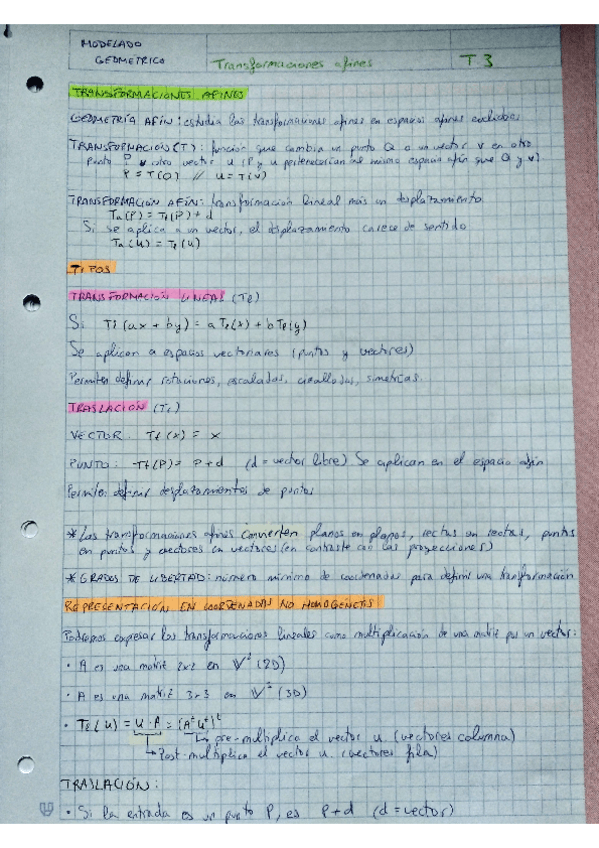 MODELADO
GEOMETRICO
Transformaciones afines
T.3
TRANSFORMACIONES AFINES
GEOMETRÍA AFÍN: estudia las transformaciones afines en espacios afines euclideos
TRANSFORMACIÓN (T): función que cambia un punto Q o un vector v en otro
punto P u otro vector u (P y u pertenecerían al mismo espacio afín que Q y v)
P = T(Q) // u = T(v)
TRANSFORMACIÓN AFÍN: transformación lineal más un desplazamiento
Ta(P) = Tl(P) + d
Si se aplica a un vector, el desplazamiento carece de sentido
Ta(u) = Tl(u)
TIPOS
TRANSFORMACIÓN LINEAL (Tl)
Si Tl(ax + by) = a Tl(x) + b Tl(y)
Se aplican a espacios vectoriales (puntos y vectores)
Permiten definir rotaciones, escalados, cizallados, simetrías.
TRASLACIÓN (Tt)
VECTOR: Tt(x) = x
PUNTO: Tt(P) = P + d (d = vector libre) Se aplican en el espacio afín
Permiten definir desplazamientos de puntos
* Las transformaciones afines convierten planos en planos, rectas en rectas, puntos
en puntos y vectores en vectores (en contraste con las proyecciones)
* GRADOS DE LIBERTAD: número mínimo de coordenadas para definir una tranformación
REPRESENTACIÓN EN COORDENADAS NO HOMOGÉNEAS
Podremos expresar las transformaciones lineales como multiplicación de una matriz por un vector:
· A es una matriz 2x2 en V² (2D)
· A es una matriz 3x3 en (3D)
· Tl(u) = =
pre-multiplica el vector u (vectores columna)
Post-multiplica el vector u (vectores fila)
TRASLACIÓN:
· Si la entrada es un punto P, es P+d (d = vector)